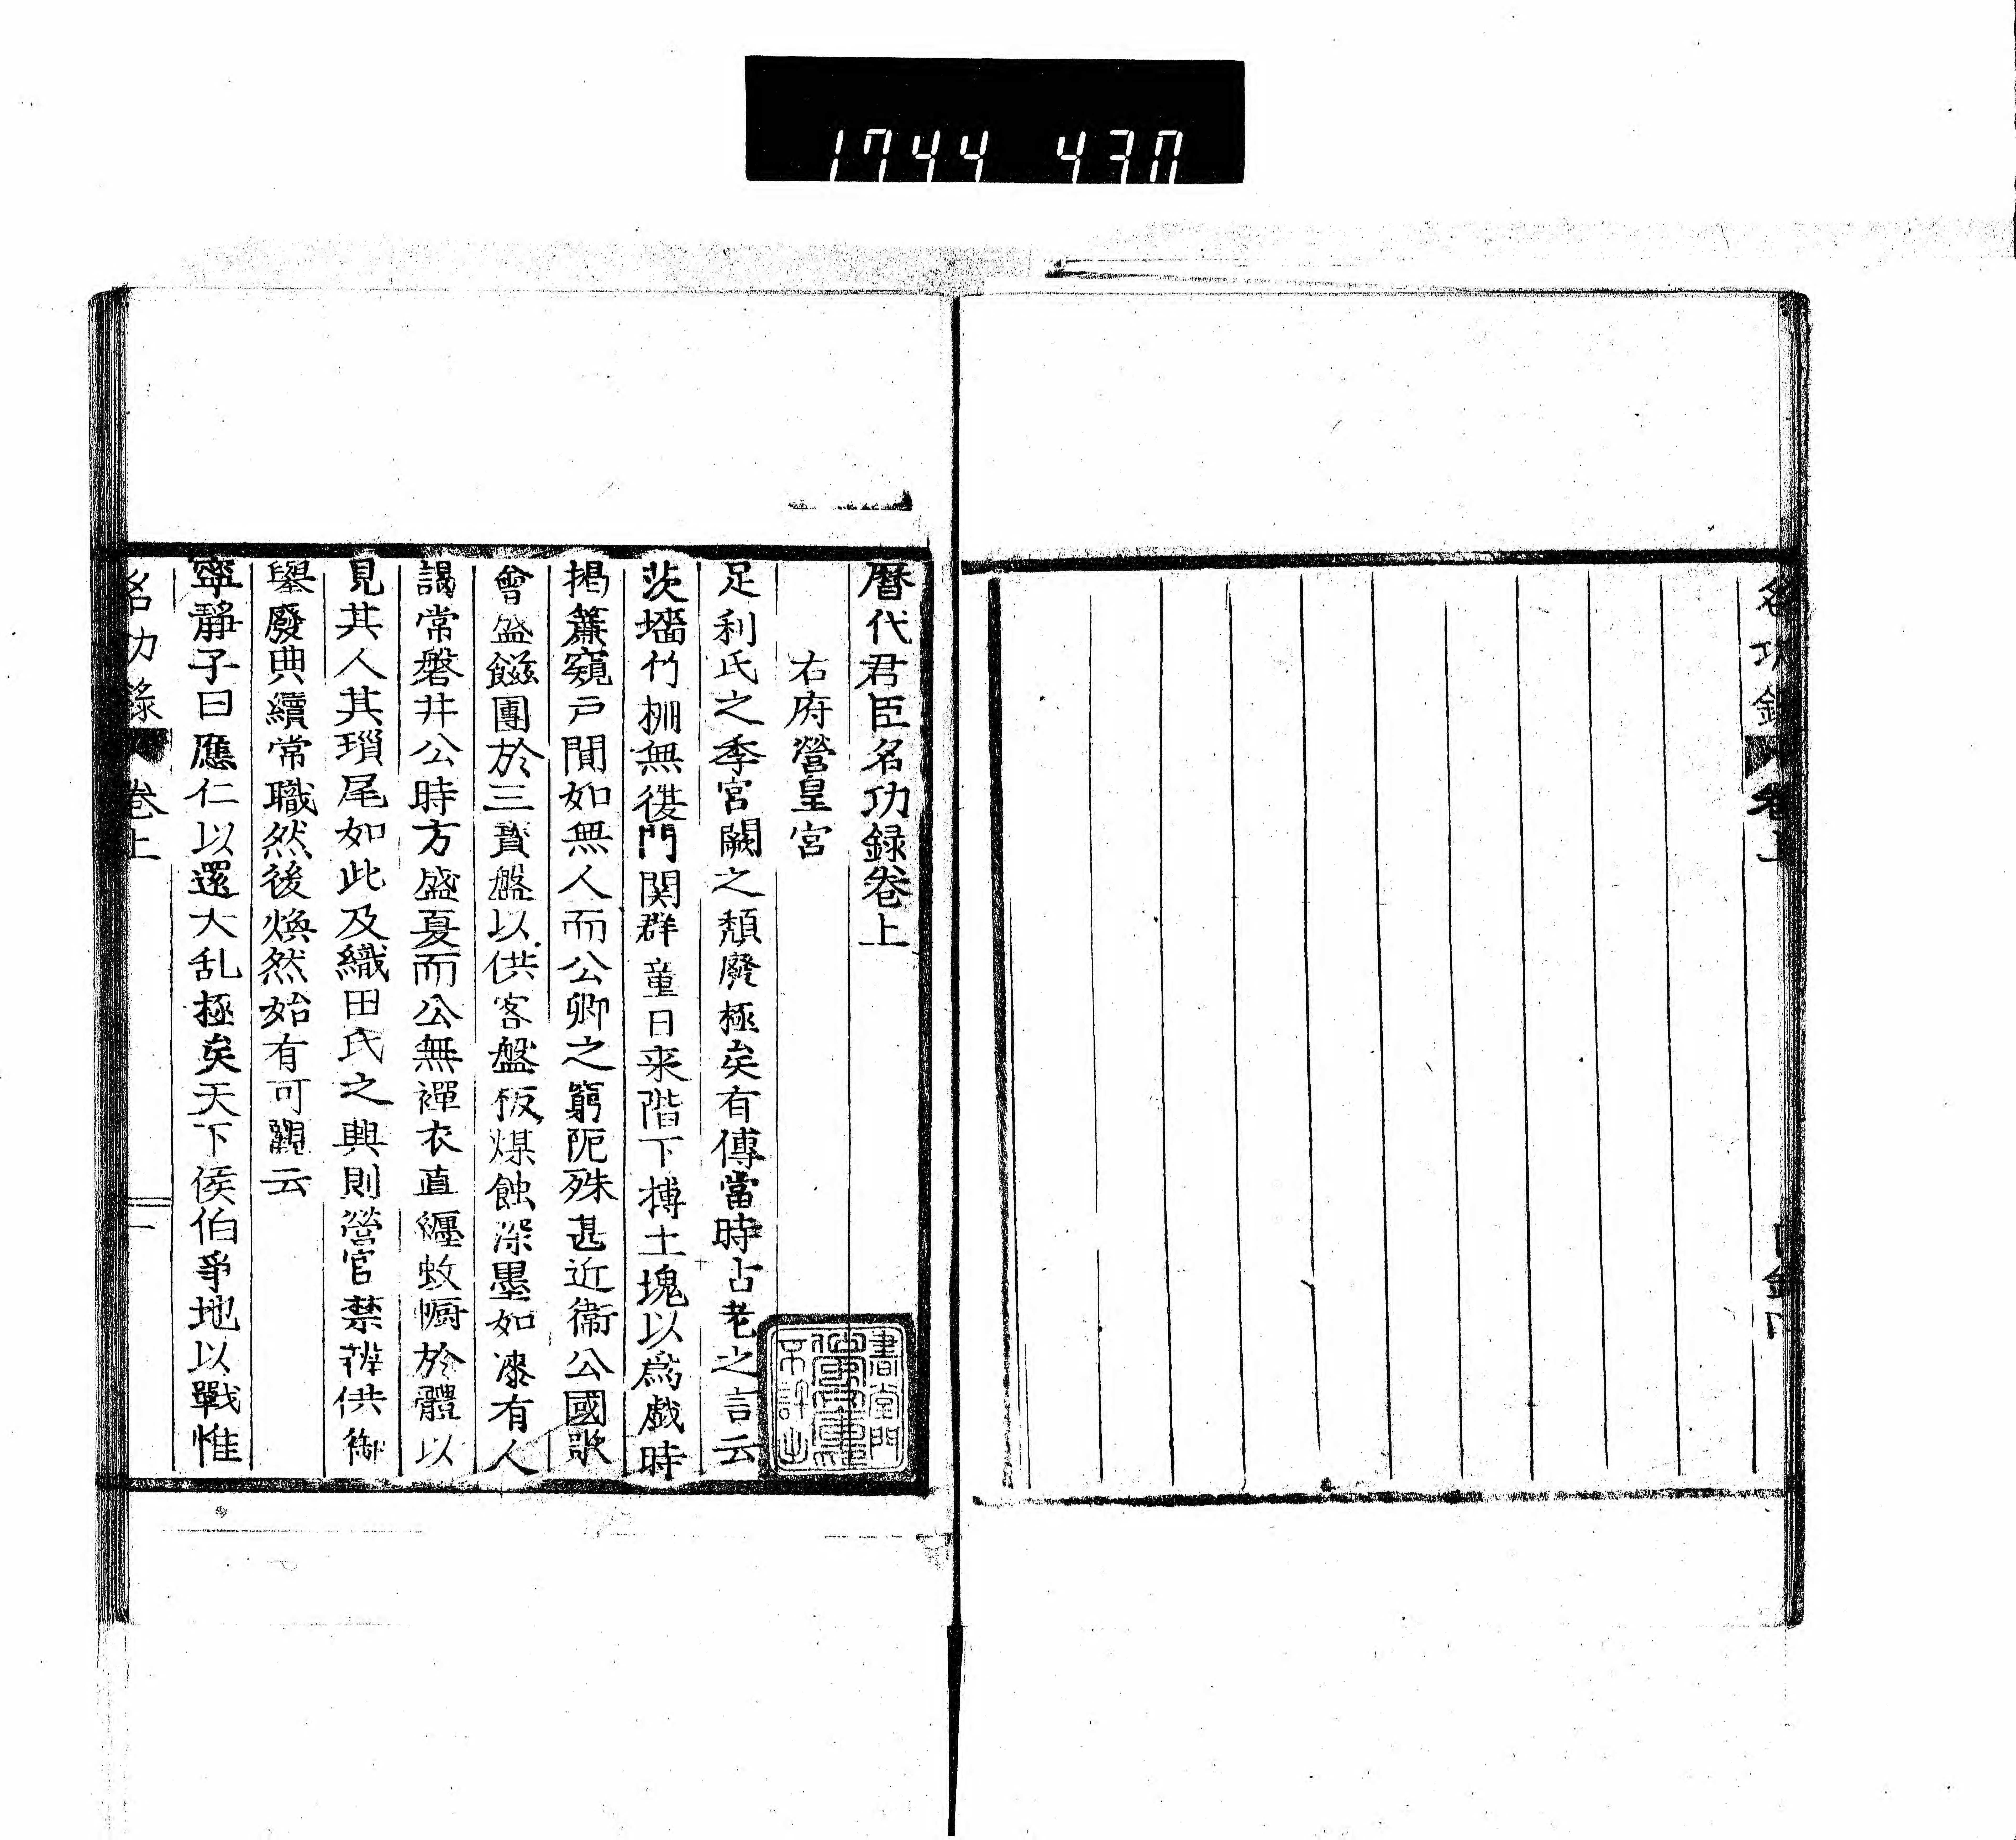 1744 430
名功録 卷上
曆代君臣名功録卷上
右府營皇宮
足利氏之季宮闕之頽廢極矣有傳當時占老之言云
茨墻竹柵無復門関群童日来階下摶土塊以爲戯時
掲簾窺戸閴如無人而公卿之窮阨殊甚近衞公國歌
會盛餈團於三寳盤以供客盤板煤蝕深墨如漆有人
謁常磐井公時方盛夏而公無襌衣直纒蚊幮於體以
見其人其瑣尾如此及織田氏之興則營官禁辨供御
舉廢典續常職然後煥然始有可觀云
寧靜子曰應仁以還大乱極矣天下侯伯爭地以戰惟
名功録 卷上 一